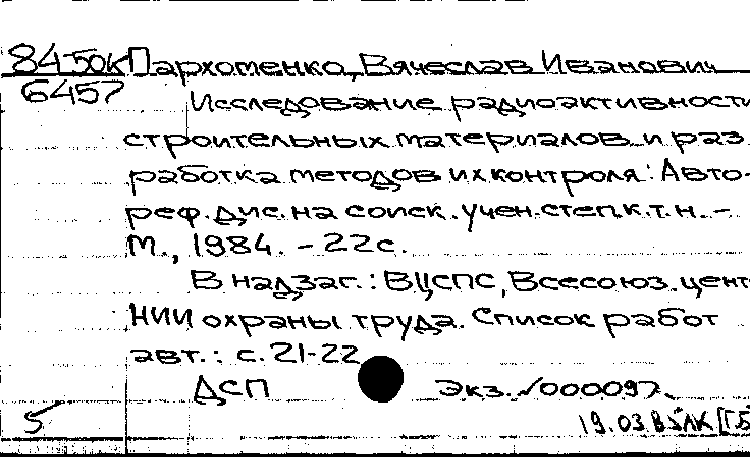 8450к Пархоменко, Вячеслав Иванович
6457
Исследование радиоактивности
строительных материалов и раз
работка методов их контроля: Авто-
реф. дис. на соиск. учен. степ. к.т.н. -
М., 1984. - 22 с.
В надзаг.: ВЦСПС, Всесоюз. цент
НИИ охраны труда. Список работ
авт.: с. 21-22
ДСП Экз. √000097.
5
19.03.85